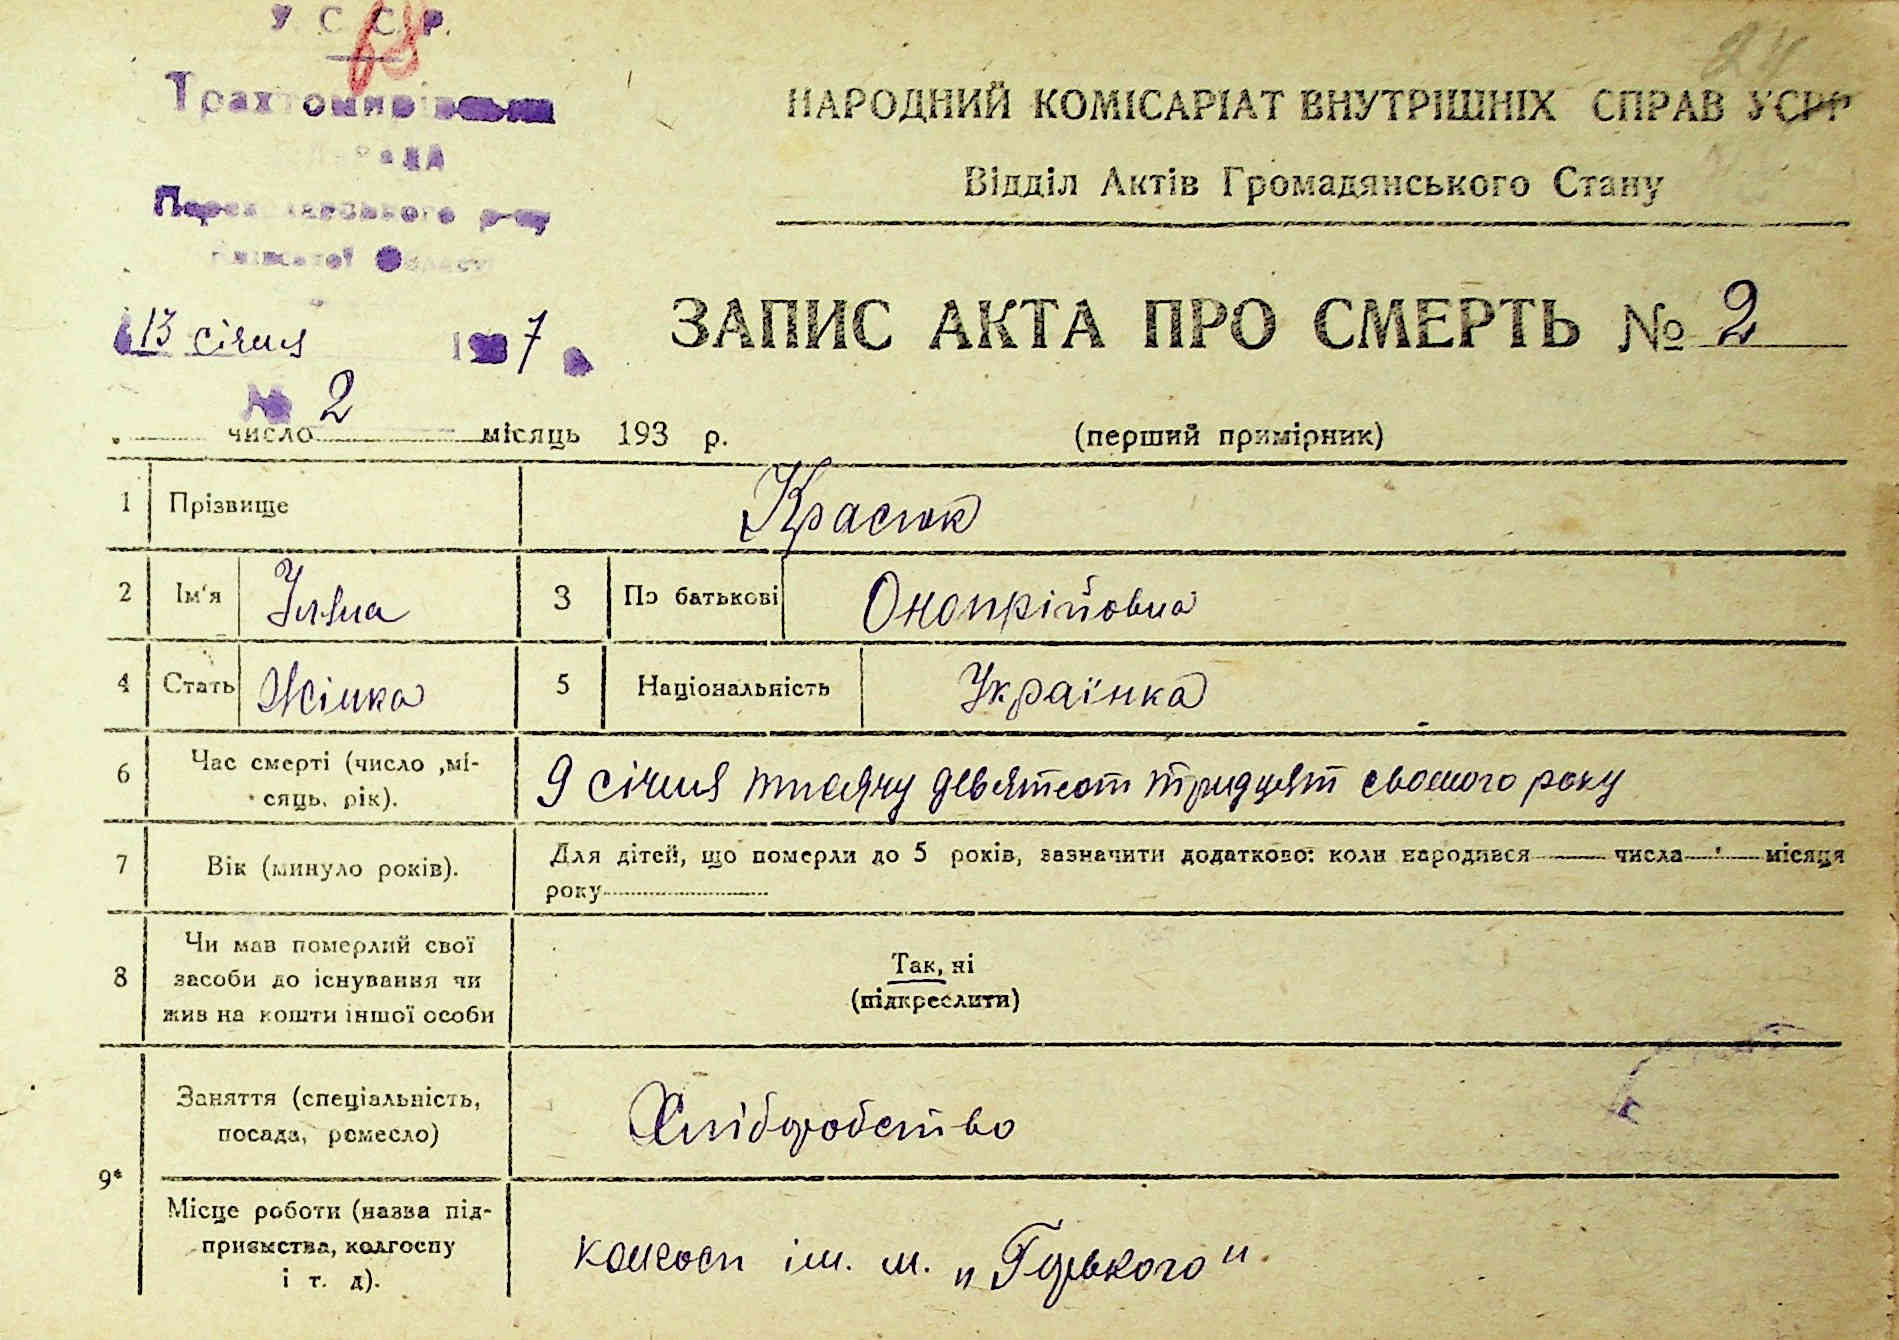 У. С. С. Р.
68
24
Трахтомирівська
РАДА
р-ну
НАРОДНИЙ КОМІСАРІАТ ВНУТРІШНІХ СПРАВ УСРР
Відділ Актів Громадянського Стану
13 січня 1937
№ 2
ЗАПИС АКТА ПРО СМЕРТЬ № 2
число місяць 193 р.
(перший примірник)
1 Прізвище Красюк
2 Ім'я Уляна 3 По батькові Онопрійовна
4 Стать Жінка 5 Національність Українка
6 Час смерті (число ,мі-
сяць, рік).
9 січня тисячу девятсот тридцят сьомого року
7 Вік (минуло років).
Для дітей, що померли до 5 років, зазначити додатково: коли народився числа місяця
року
8 Чи мав померлий свої
засоби до існування чи
жив на кошти іншої особи
Так, ні
(підкреслити)
9*
Заняття (спеціальність,
посада, ремесло)
Хліборобство
Місце роботи (назва під-
приємства, колгоспу
і т. д).
колгосп ім. м. „Горького"